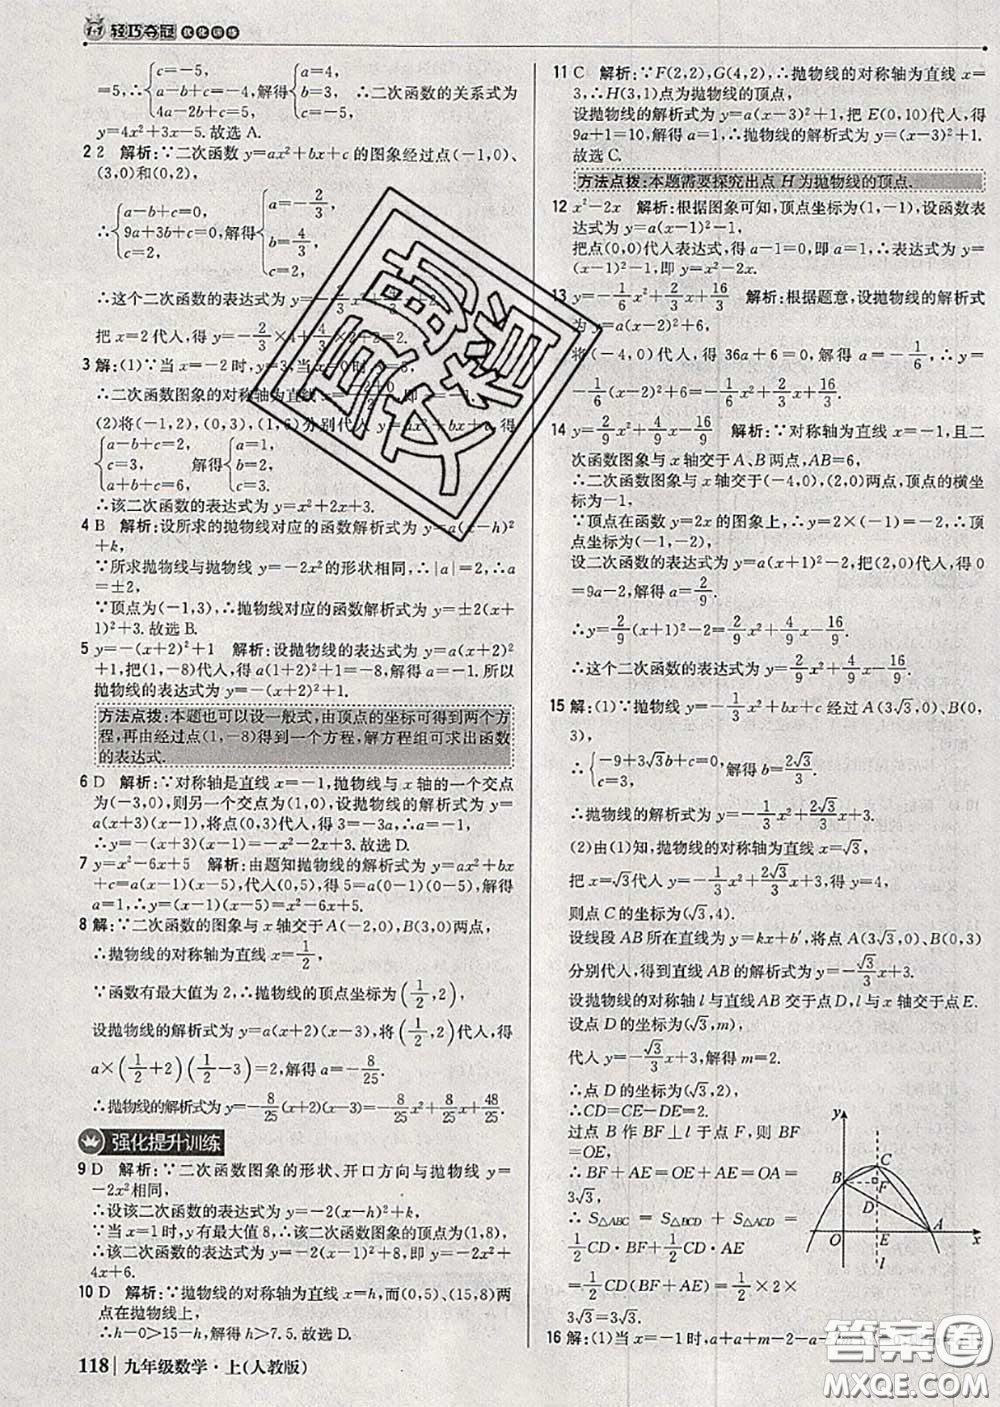 1+1 轻巧夺冠 优化训练
=5,∴{c=-5, a-b+c=-4, 4a-2b+c=5, 解得{a=4, b=3, c=-5, ∴二次函数的关系式为
y=4x²+3x-5.故选 A.
2 2 解析:∵二次函数 y=ax²+bx+c 的图象经过点(-1,0),
(3,0)和(0,2),
∴{a-b+c=0, 9a+3b+c=0, c=2, 解得{a=-2/3, b=4/3, c=2,
∴这个二次函数的表达式为 y=-
把 x=2代人,得 y=-2/3×4+
3 解:(1)∵当 x=-2时,y=3,当 x=0时,
∴二次函数图象的对称轴为直线 x=
(2)将(-1,2),(0,3),(1,6)分别代入 y=ax²+bx+c,得
{a-b+c=2, c=3, a+b+c=6, 解得{a=1, b=2, c=3.
∴该二次函数的表达式为 y=x²+2x+3.
4 B 解析:设所求的抛物线对应的函数解析式为 y=a(x-h)²
+k,
∵所求抛物线与抛物线 y=-2x²的形状相同,∴|a|=2,∴a
=±2,
∵顶点为(-1,3),∴抛物线对应的函数解析式为 y=±2(x+
1)²+3.故选 B.
5 y=-(x+2)²+1 解析:设抛物线的表达式为 y=a(x+2)²
+1,把(1,-8)代人,得 a(1+2)²+1=-8,解得 a=-1.所以
抛物线的表达式为 y=-(x+2)²+1.
方法点拨:本题也可以设一般式,由顶点的坐标可得到两个方
程,再由经过点(1,-8)得到一个方程,解方程组可求出函数
的表达式.
6 D 解析:∵对称轴是直线 x=-1,抛物线与 x 轴的一个交点
为(-3,0),则另一个交点为(1,0),设抛物线的表达式为 y=
a(x+3)(x-1),将点(0,3)代人,得 3=-3a,∴a=-1,
∴y=-(x+3)(x-1)=-x²-2x+3.故选 D.
7 y=x²-6x+5 解析:由题知抛物线的解析式为 y=ax²+bx
+c=a(x-1)(x-5),代人(0,5),得 5=a(0-1)(0-5),解得
a=1,∴y=(x-1)(x-5)=x²-6x+5.
8 解:∵二次函数的图象与 x 轴交于 A(-2,0),B(3,0)两点,
∴抛物线的对称轴为直线 x=1/2,
∵函数有最大值为 2,∴抛物线的顶点坐标为(1/2,2),
设抛物线的解析式为 y=a(x+2)(x-3),将(1/2,2)代人,得
a×(1/2+2)(1/2-3)=2,解得 a=-8/25.
∴抛物线的解析式为 y=-8/25(x+2)(x-3)=-8/25x²+8/25x+48/25.
强化提升训练
9 D 解析:∵二次函数图象的形状、开口方向与抛物线 y=
-2x²相同,
∴设该二次函数的表达式为 y=-2(x-h)²+k,
∵当 x=1时,y有最大值 8,∴该二次函数图象的顶点为(1,8),
∴该二次函数的表达式为 y=-2(x-1)²+8,即 y=-2x²+
4x+6.
10 D 解析:∵抛物线的对称轴为直线 x=h,而(0,5),(15,8)两
点在抛物线上,
∴h-0>15-h,解得 h>7.5.故选 D.
118 九年级数学·上(人教版)
11 C 解析:∵F(2,2),G(4,2),∴抛物线的对称轴为直线 x=
3,∴H(3,1)点为抛物线的顶点,
设抛物线的解析式为 y=a(x-3)²+1,把 E(0,10)代人,得
9a+1=10,解得 a=1,∴抛物线的解析式为 y=(x-3)²+1.
故选 C.
方法点拨:本题需要探究出点 H 为抛物线的顶点.
12 x²-2x 解析:根据图象可知,顶点坐标为(1,-1),设函数表
达式为 y=a(x-1)²-1,
把点(0,0)代人表达式,得 a-1=0,即 a=1,∴表达式为 y=
(x-1)²-1,即 y=x²-2x.
13 y=-1/6x²+2/3x+16/3 解析:根据题意,设抛物线的解析式
为 y=a(x-2)²+6,
将(-4,0)代人,得 36a+6=0,解得 a=-1/6,∴y=
-1/6(x-2)²+6=-1/6x²+2/3x+16/3.
14 y=2/9x²+4/9x-16/9 解析:∵对称轴为直线 x=-1,且二
次函数图象与 x 轴交于 A、B 两点,AB=6,
∴二次函数图象与 x 轴交于(-4,0),(2,0)两点,顶点的横坐
标为-1.
∵顶点在函数 y=2x 的图象上,∴y=2×(-1)=-2,∴顶
点坐标为(-1,-2),
设二次函数解析式为 y=a(x+1)²-2,把(2,0)代人,得 0
=9a-2,解得 a=2/9.
∴y=2/9(x+1)²-2=2/9x²+4/9x-16/9.
∴这个二次函数的表达式为 y=2/9x²+4/9x-16/9.
15 解:(1)∵抛物线 y=-1/3x²+bx+c 经过 A(3√3,0),B(0,
3),
∴{-9+3√3b+c=0, c=3, 解得 b=2√3/3,
∴抛物线的解析式为 y=-1/3x²+2√3/3x+3.
(2)由(1)知,抛物线的对称轴为直线 x=√3,
把 x=√3代人 y=-1/3x²+2√3/3x+3,得 y=4,
则点 C 的坐标为(√3,4).
设线段 AB 所在直线为 y=kx+b′,将点 A(3√3,0)、B(0,3)
分别代人,得到直线 AB 的解析式为 y=-√3/3x+3.
设抛物线的对称轴 l 与直线 AB 交于点 D,l 与 x 轴交于点 E.
设点 D 的坐标为(√3,m),
代人 y=-√3/3x+3,解得 m=2.
∴点 D 的坐标为(√3,2),
∴CD=CE-DE=2.
过点 B 作 BF⊥l 于点 F,则 BF
=OE,
∴BF+AE=OE+AE=OA=
3√3,
∴S△ABC=S△BCD+S△ACD=
1/2CD·BF+1/2CD·AE
=1/2CD(BF+AE)=1/2×2×
3√3=3√3.
y
B
C
F
D
A
O
E
x
l
16 解:(1)当 x=-1时,a+a+m-2-a-
答案圈
MXQE.COM